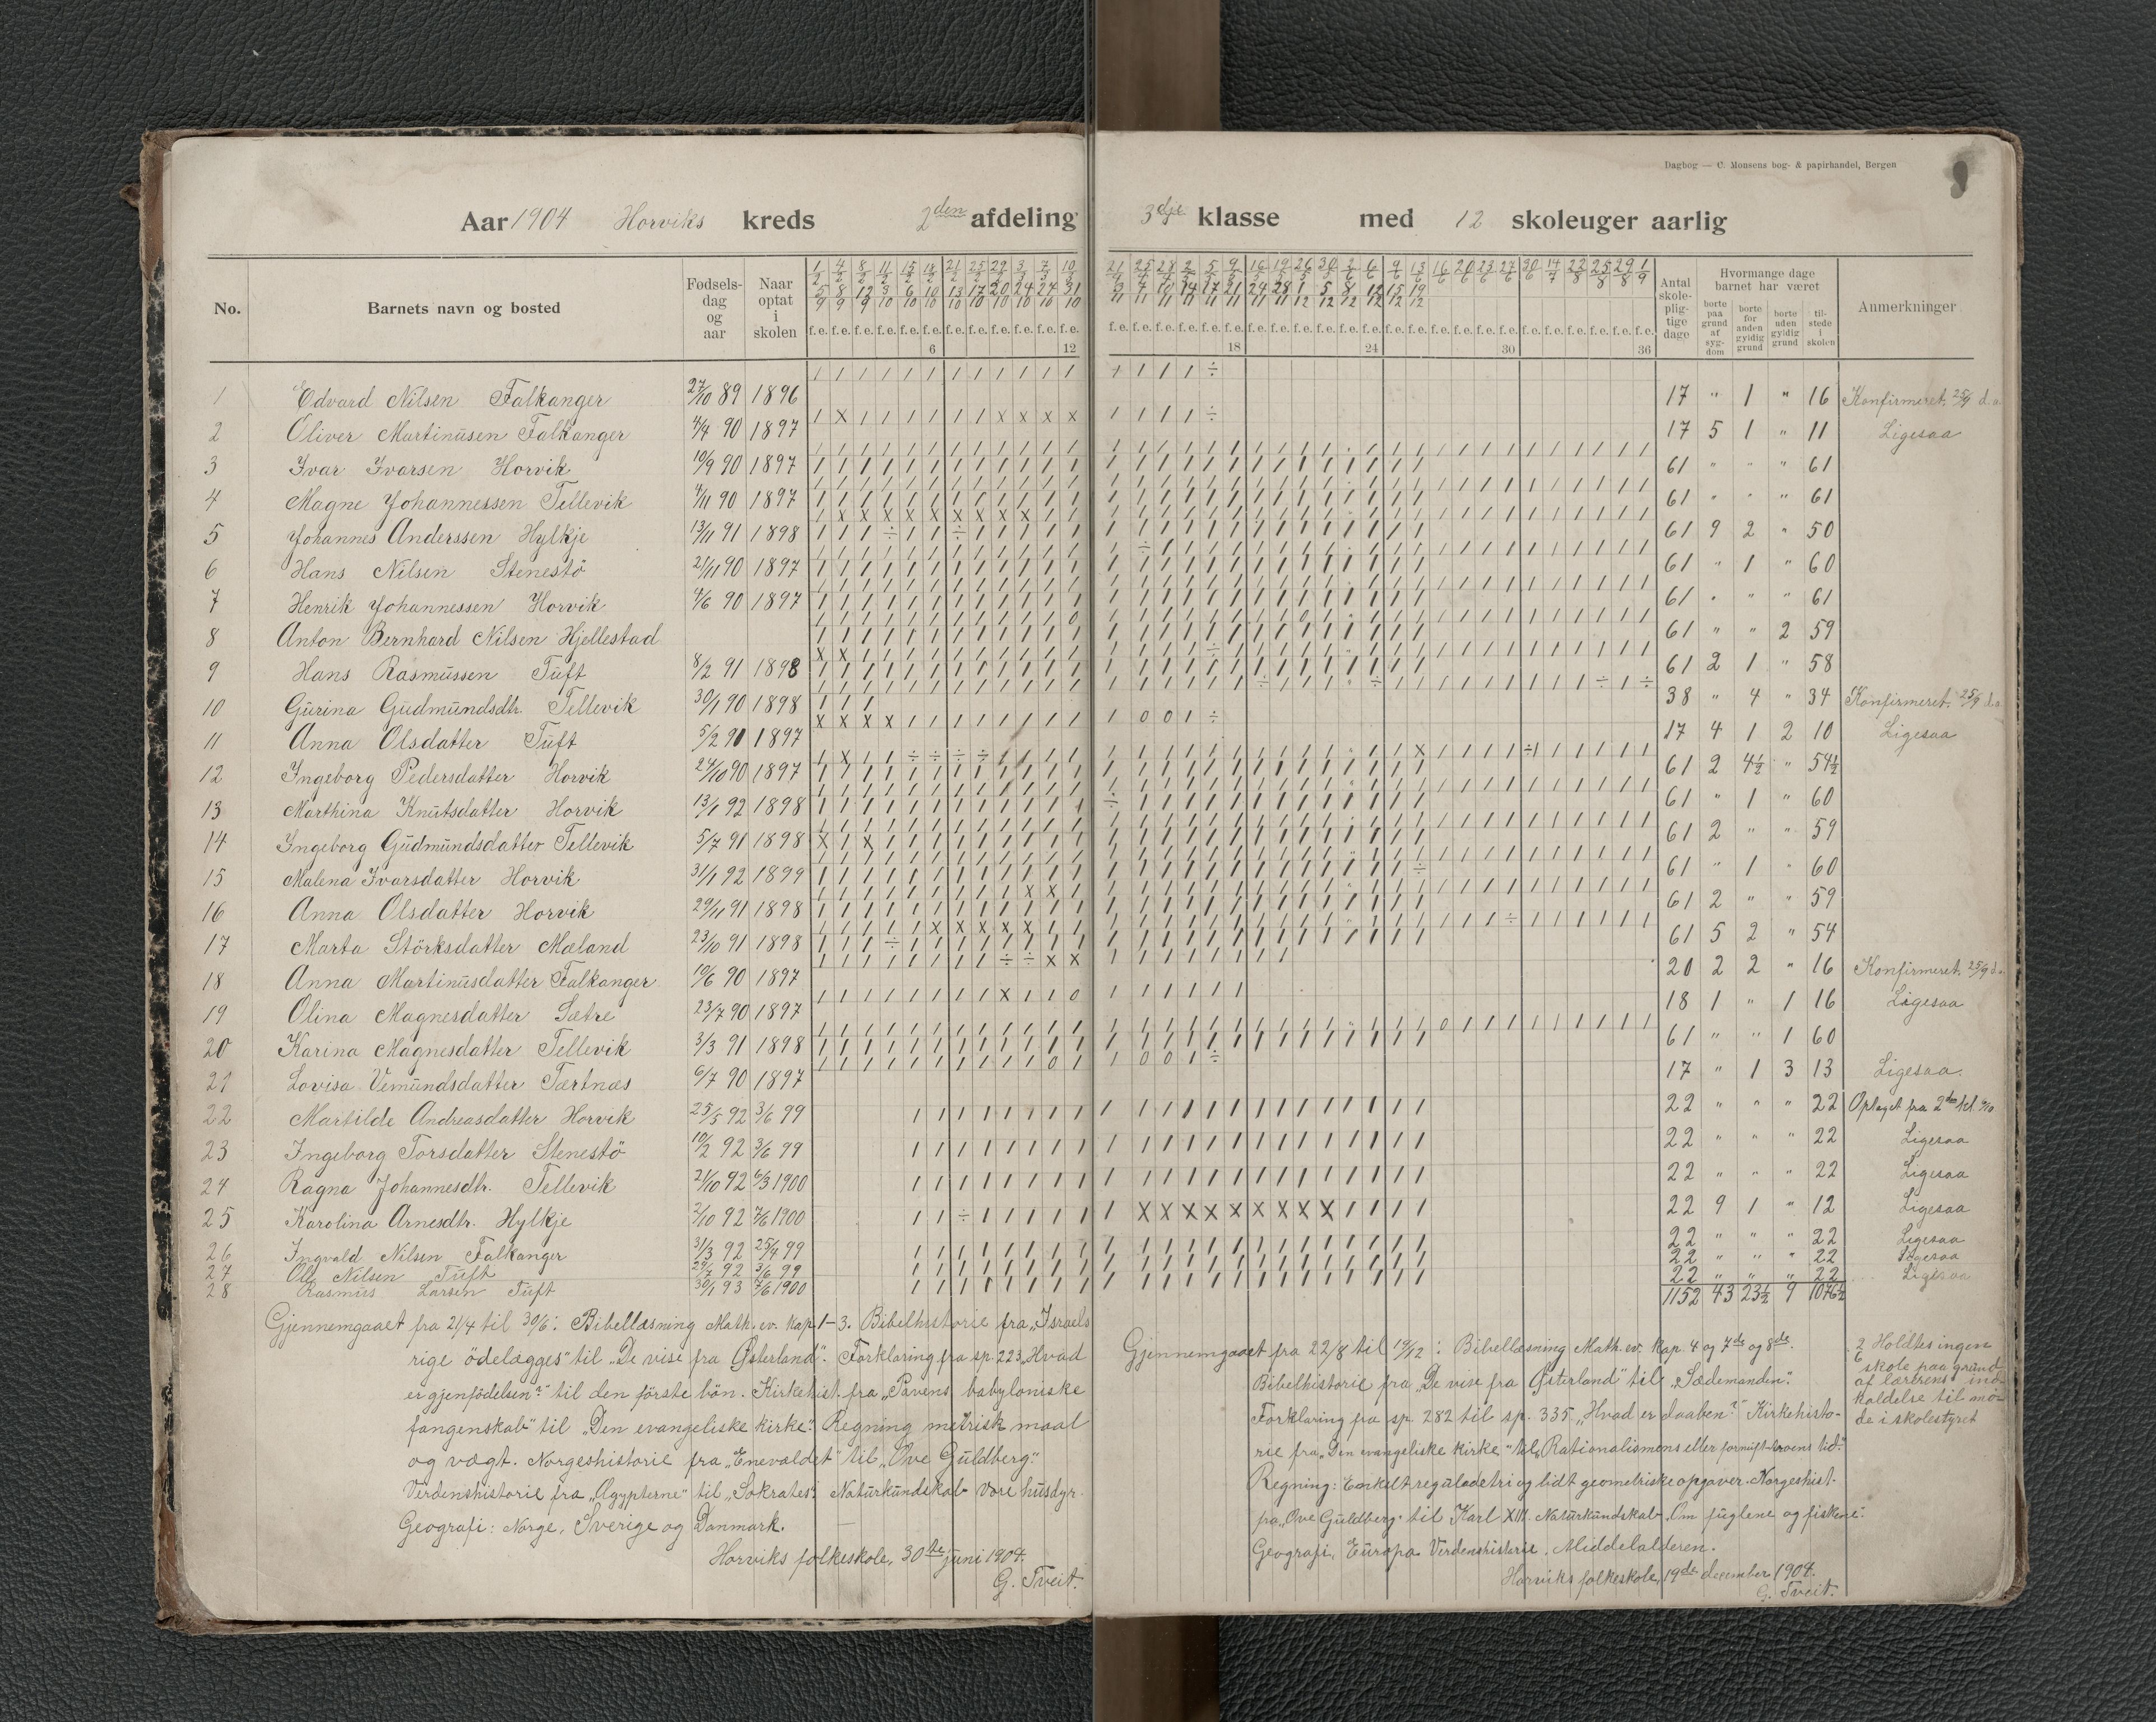 Dagbog — C. Monsens bog- & papirhandel, Bergen
Aar 1904 Horviks kreds 2den afdeling 3dje klasse med 12 skoleuger aarlig
No. Barnets navn og bosted Fødsels-dag og aar Naar optat i skolen Antal skole-plig-tige dage Hvormange dage barnet har været Anmerkninger
borte paa grund af syg-dom borte for anden gyldig grund borte uden gyldig grund til-stede i skolen
6 12 18 24 30 36
1 Edvard Nilsen Falkanger 27/10 89 1896 17 " 1 " 16 Konfirmeret 25/9 d.a.
2 Oliver Martinusen Falkanger 4/4 90 1897 17 5 1 " 11 Ligesaa
3 Ivar Ivarsen Horvik 10/9 90 1897 61 " " " 61
4 Magne Johannessen Tellevik 4/11 90 1897 61 " " " 61
5 Johannes Anderssen Hylkje 13/11 91 1898 61 9 2 " 50
6 Hans Nilsen Stenestö 21/11 90 1897 61 " 1 " 60
7 Henrik Johannessen Horvik 4/6 90 1897 61 " " " 61
8 Anton Bernhard Nilsen Hjellestad 61 " " 2 59
9 Hans Rasmussen Tuft 8/2 91 1898 61 2 1 " 58
10 Gurina Gudmundsdtr. Tellevik 30/1 90 1898 38 " 4 " 34 Konfirmeret 25/9 d.a.
11 Anna Olsdatter Tuft 5/2 90 1897 17 4 1 2 10 Ligesaa
12 Ingeborg Pedersdatter Horvik 24/10 90 1897 61 2 4½ " 54½
13 Marthina Knutsdatter Horvik 13/1 92 1898 61 " 1 " 60
14 Ingeborg Gudmundsdatter Tellevik 5/7 91 1898 61 2 " " 59
15 Malena Ivarsdatter Horvik 31/1 92 1899 61 " 1 " 60
16 Anna Olsdatter Horvik 29/11 91 1898 61 2 " " 59
17 Marta Störksdatter Mæland 23/10 91 1898 61 5 2 " 54
18 Anna Martinusdatter Falkanger 10/6 90 1897 20 2 2 " 16 Konfirmeret 25/9 d.a.
19 Olina Magnesdatter Sætre 23/7 90 1897 18 1 " 1 16 Ligesaa
20 Karina Magnesdatter Tellevik 3/3 91 1898 61 " " 1 60
21 Lovisa Vemundsdatter Tærtnæs 6/7 90 1897 17 " 1 3 13 Ligesaa.
22 Martilde Andreasdatter Horvik 25/5 92 3/6 99 22 " " " 22 Optaget fra 2den kl.
23 Ingeborg Torsdatter Stenestö 10/2 92 3/6 99 22 " " " 22 Ligesaa
24 Ragna Johannesdtr. Tellevik 21/10 92 6/3 1900 22 " " " 22 Ligesaa
25 Karolina Arnesdtr. Hylkje 2/10 92 7/6 1900 22 9 1 " 12 Ligesaa
26 Ingvald Nilsen Falkanger 31/3 92 25/4 99 22 " " " 22 Ligesaa
27 Ole Nilsen Tuft 29/7 92 3/6 99 22 " " " 22 Ligesaa
28 Rasmus Larsen Tuft 30/1 93 7/6 1900 22 " " " 22 Ligesaa
1152 43 23½ 9 1076½
Gjennemgaaet fra 21/4 til 30/6: Bibellæsning Math. ev. kap. 1-3. Bibelhistorie fra „Israels
rige ödelægges" til „De vise fra Østerland". Forklaring fra sp. 223 „Hvad
er gjenfödelsen?" til den förste bön. Kirkehist. fra „Pavens babyloniske
fangenskab" til „Den evangeliske kirke". Regning metrisk maal
og vægt. Norgeshistorie fra „Enevældet" til „Ove Guldberg".
Verdenshistorie fra „Ægypterne" til „Sokrates". Naturkundskab Vore husdyr.
Geografi: Norge, Sverige og Danmark.
Horviks folkeskole, 30te juni 1904.
G. Tveit.
Gjennemgaaet fra 22/8 til 19/12: Bibellæsning Math. ev. kap. 4 og 7de og 8de.
Bibelhistorie fra „De vise fra Østerland" til „Sædemanden".
Forklaring fra sp. 282 til sp. 335 „Hvad er daaben?" Kirkehisto-
rie fra „Den evangeliske kirke" til „Rationalismens eller fornuft-troens tid."
Regning: Enkelt reguladetri og lidt geometriske opgaver. Norgeshist.
fra „Ove Guldberg" til Karl XIII. Naturkundskab „Om fuglene og fiskene".
Geografi, Europa. Verdenshistorie, Middelalderen.
Horviks folkeskole, 19de december 1904.
G. Tveit.
2/6 Holdtes ingen
skole paa grund
af lærerens ind-
kaldelse til mö-
de i skolestyret